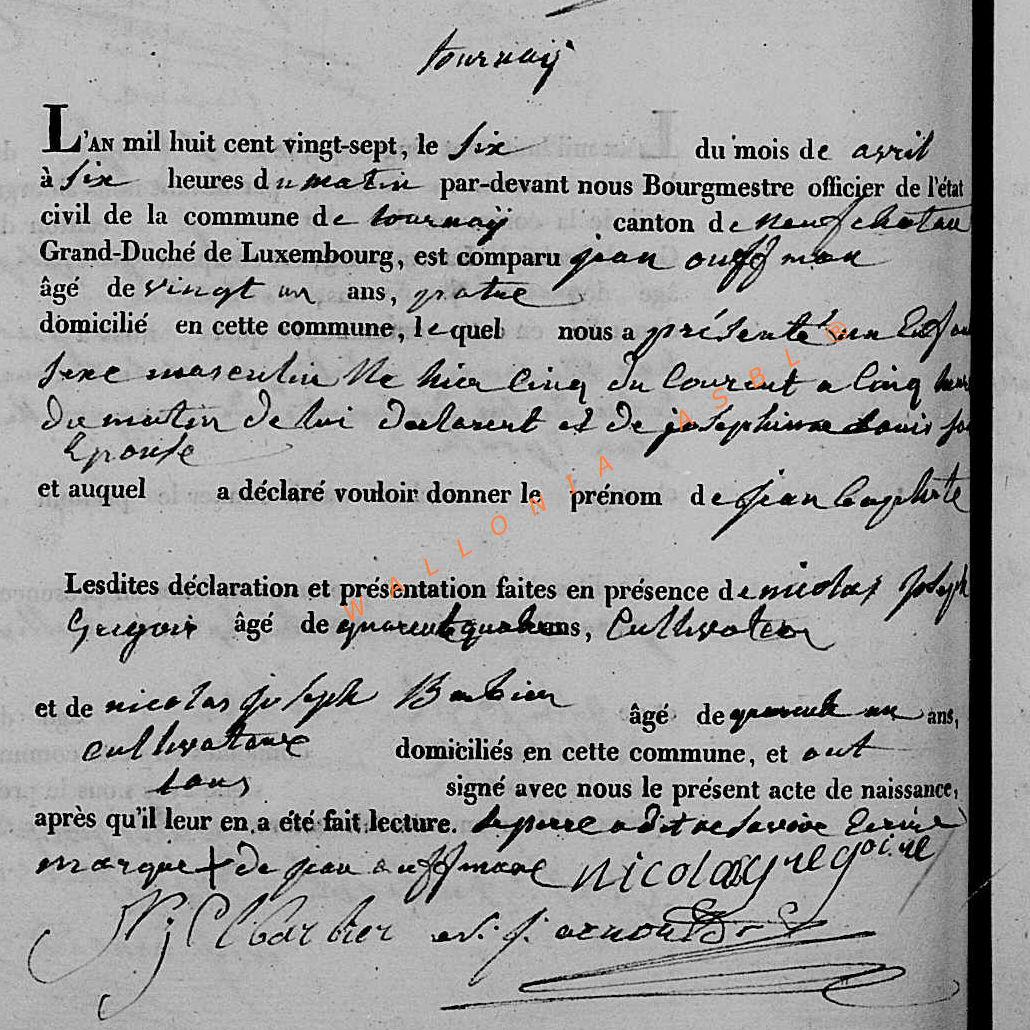 tournay
L'AN mil huit cent vingt-sept, le six du mois de avril
à six heures du matin par-devant nous Bourgmestre officier de l'état
civil de la commune de tournaÿ canton de neufchatau
Grand-Duché de Luxembourg, est comparu jean ouffman
âgé de vingt un ans, patre
domicilié en cette commune, lequel nous a présenté un Enfan
sexe masculin Ne hier Cinq du Courent a Cinq heur
Du mattin de lui declarent et de josephinne Louis so
Epouse
et auquel a déclaré vouloir donner le prénom de jean baptiste
Lesdites déclaration et présentation faites en présence de nicolas joseph
Gregoir âgé de quarente quatre ans, Cultivateur
et de nicolas joseph Barbier âgé de quarente un ans,
cultivateur domiciliés en cette commune, et ont
tous signé avec nous le présent acte de naissance,
après qu'il leur en a été fait lecture. le pere a dit ne savoir Ecrire
marque + de jean auffmane nicolas gregoire
N j Barbier arnould
WALLONIA ASBL ®